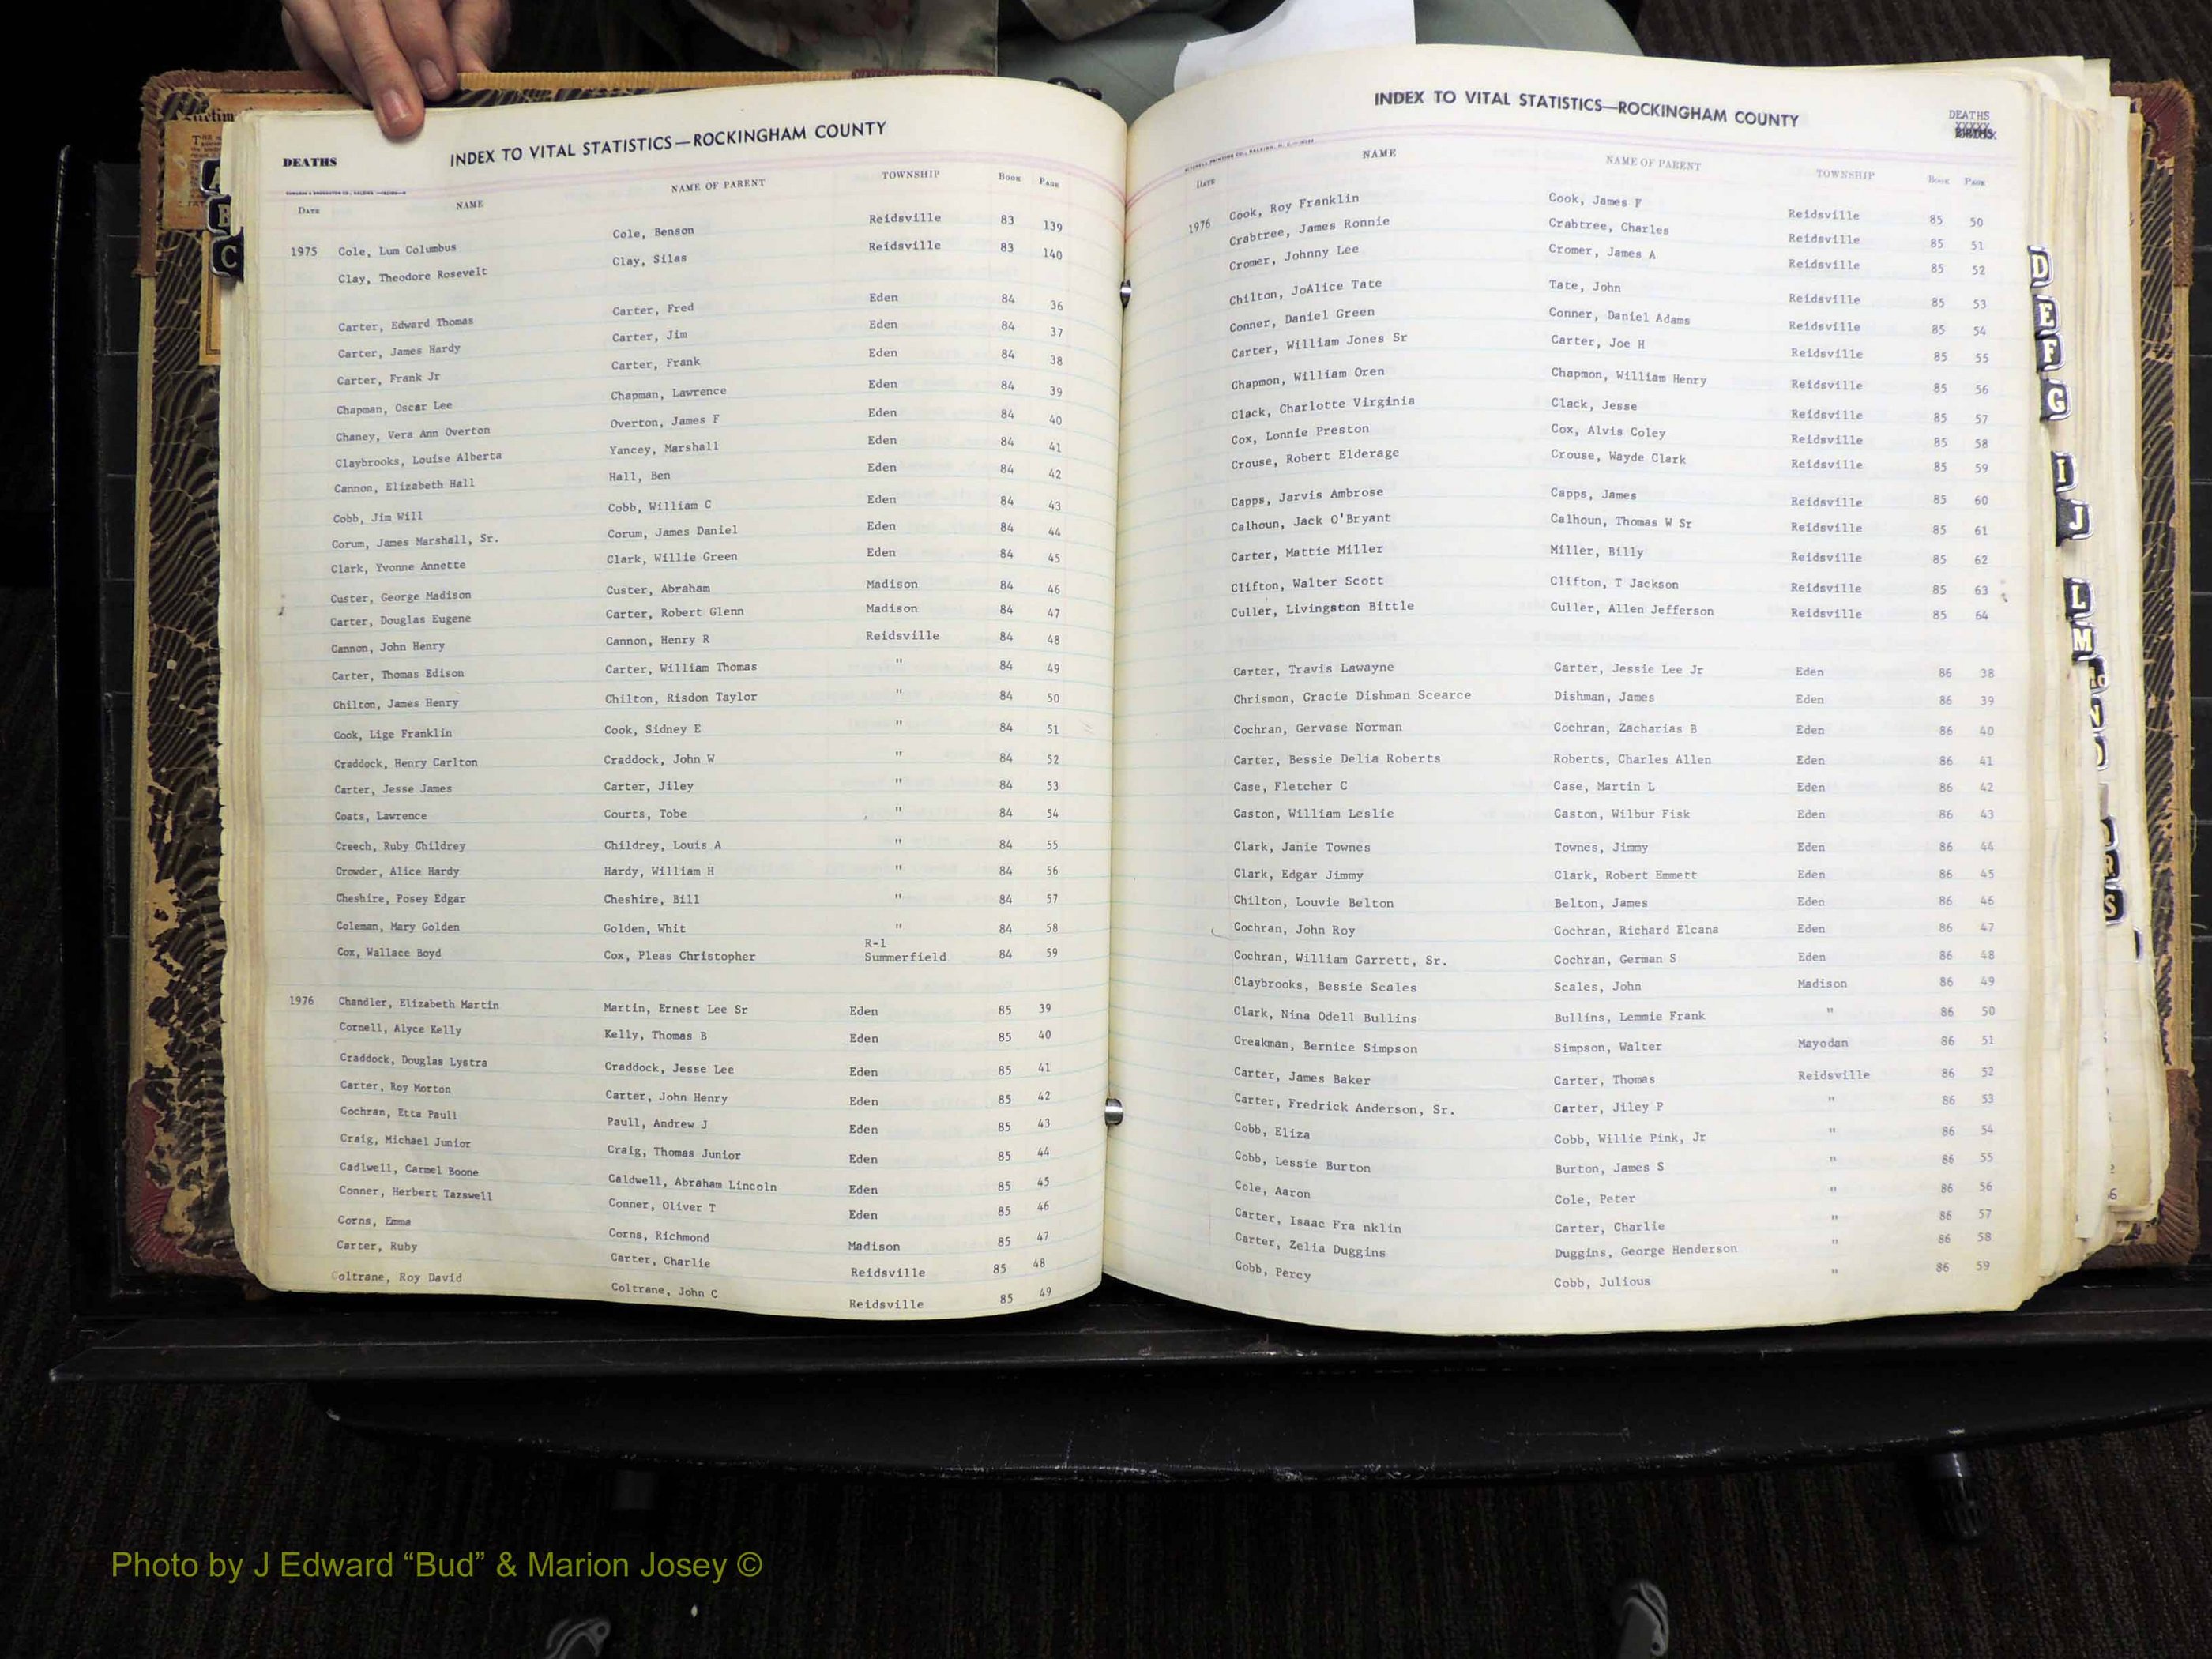 INDEX TO VITAL STATISTICS—ROCKINGHAM COUNTY
DEATHS
DATE NAME NAME OF PARENT TOWNSHIP BOOK PAGE
1975 Cole, Lum Columbus Cole, Benson Reidsville 83 139
Clay, Theodore Rosevelt Clay, Silas Reidsville 83 140
Carter, Edward Thomas Carter, Fred Eden 84 36
Carter, James Hardy Carter, Jim Eden 84 37
Carter, Frank Jr Carter, Frank Eden 84 38
Chapman, Oscar Lee Chapman, Lawrence Eden 84 39
Chaney, Vera Ann Overton Overton, James F Eden 84 40
Claybrooks, Louise Alberta Yancey, Marshall Eden 84 41
Cannon, Elizabeth Hall Hall, Ben Eden 84 42
Cobb, Jim Will Cobb, William C Eden 84 43
Corum, James Marshall, Sr. Corum, James Daniel Eden 84 44
Clark, Yvonne Annette Clark, Willie Green Eden 84 45
Custer, George Madison Custer, Abraham Madison 84 46
Carter, Douglas Eugene Carter, Robert Glenn Madison 84 47
Cannon, John Henry Cannon, Henry R Reidsville 84 48
Carter, Thomas Edison Carter, William Thomas " 84 49
Chilton, James Henry Chilton, Risdon Taylor " 84 50
Cook, Lige Franklin Cook, Sidney E " 84 51
Craddock, Henry Carlton Craddock, John W " 84 52
Carter, Jesse James Carter, Jiley " 84 53
Coats, Lawrence Courts, Tobe " 84 54
Creech, Ruby Childrey Childrey, Louis A " 84 55
Crowder, Alice Hardy Hardy, William H " 84 56
Cheshire, Posey Edgar Cheshire, Bill " 84 57
Coleman, Mary Golden Golden, Whit " 84 58
R-1
Cox, Wallace Boyd Cox, Pleas Christopher Summerfield 84 59
1976 Chandler, Elizabeth Martin Martin, Ernest Lee Sr Eden 85 39
Cornell, Alyce Kelly Kelly, Thomas B Eden 85 40
Craddock, Douglas Lystra Craddock, Jesse Lee Eden 85 41
Carter, Roy Morton Carter, John Henry Eden 85 42
Cochran, Etta Paull Paull, Andrew J Eden 85 43
Craig, Michael Junior Craig, Thomas Junior Eden 85 44
Cadlwell, Carmel Boone Caldwell, Abraham Lincoln Eden 85 45
Conner, Herbert Tazswell Conner, Oliver T Eden 85 46
Corns, Emma Corns, Richmond Madison 85 47
Carter, Ruby Carter, Charlie Reidsville 85 48
Coltrane, Roy David Coltrane, John C Reidsville 85 49
INDEX TO VITAL STATISTICS—ROCKINGHAM COUNTY
DEATHS
XXXXX
DATE NAME NAME OF PARENT TOWNSHIP BOOK PAGE
1976 Cook, Roy Franklin Cook, James F Reidsville 85 50
Crabtree, James Ronnie Crabtree, Charles Reidsville 85 51
Cromer, Johnny Lee Cromer, James A Reidsville 85 52
Chilton, JoAlice Tate Tate, John Reidsville 85 53
Conner, Daniel Green Conner, Daniel Adams Reidsville 85 54
Carter, William Jones Sr Carter, Joe H Reidsville 85 55
Chapmon, William Oren Chapmon, William Henry Reidsville 85 56
Clack, Charlotte Virginia Clack, Jesse Reidsville 85 57
Cox, Lonnie Preston Cox, Alvis Coley Reidsville 85 58
Crouse, Robert Elderage Crouse, Wayde Clark Reidsville 85 59
Capps, Jarvis Ambrose Capps, James Reidsville 85 60
Calhoun, Jack O'Bryant Calhoun, Thomas W Sr Reidsville 85 61
Carter, Mattie Miller Miller, Billy Reidsville 85 62
Clifton, Walter Scott Clifton, T Jackson Reidsville 85 63
Culler, Livingston Bittle Culler, Allen Jefferson Reidsville 85 64
Carter, Travis Lawayne Carter, Jessie Lee Jr Eden 86 38
Chrismon, Gracie Dishman Scearce Dishman, James Eden 86 39
Cochran, Gervase Norman Cochran, Zacharias B Eden 86 40
Carter, Bessie Delia Roberts Roberts, Charles Allen Eden 86 41
Case, Fletcher C Case, Martin L Eden 86 42
Caston, William Leslie Caston, Wilbur Fisk Eden 86 43
Clark, Janie Townes Townes, Jimmy Eden 86 44
Clark, Edgar Jimmy Clark, Robert Emmett Eden 86 45
Chilton, Louvie Belton Belton, James Eden 86 46
Cochran, John Roy Cochran, Richard Elcana Eden 86 47
Cochran, William Garrett, Sr. Cochran, German S Eden 86 48
Claybrooks, Bessie Scales Scales, John Madison 86 49
Clark, Nina Odell Bullins Bullins, Lemmie Frank " 86 50
Creakman, Bernice Simpson Simpson, Walter Mayodan 86 51
Carter, James Baker Carter, Thomas Reidsville 86 52
Carter, Fredrick Anderson, Sr. Carter, Jiley P " 86 53
Cobb, Eliza Cobb, Willie Pink, Jr " 86 54
Cobb, Lessie Burton Burton, James S " 86 55
Cole, Aaron Cole, Peter " 86 56
Carter, Isaac Fra nklin Carter, Charlie " 86 57
Carter, Zelia Duggins Duggins, George Henderson " 86 58
Cobb, Percy Cobb, Julious " 86 59
A
B
C
D
E
F
G
I
J
L
M
N
O
R
S
Photo by J Edward “Bud” & Marion Josey ©